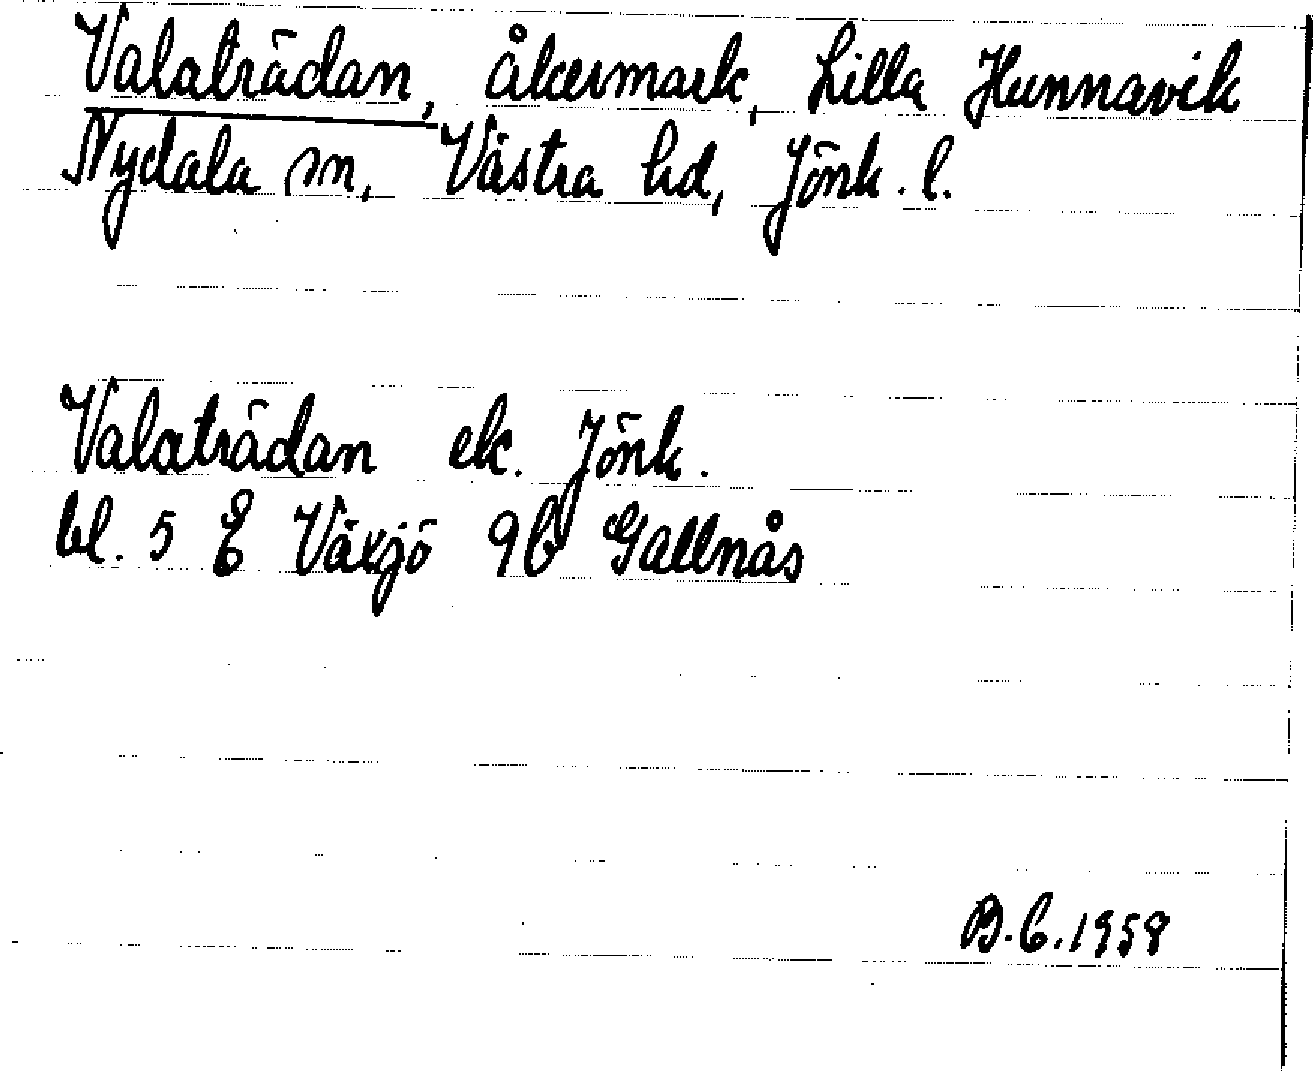 Valaträdan, åkermark, Lilla Hunnavik
Nydala sn, Västra hd, Jönk. l.
Valaträdan ek. Jönk.
bl. 5 E Växjö 9b Gallnås
B.C.1958